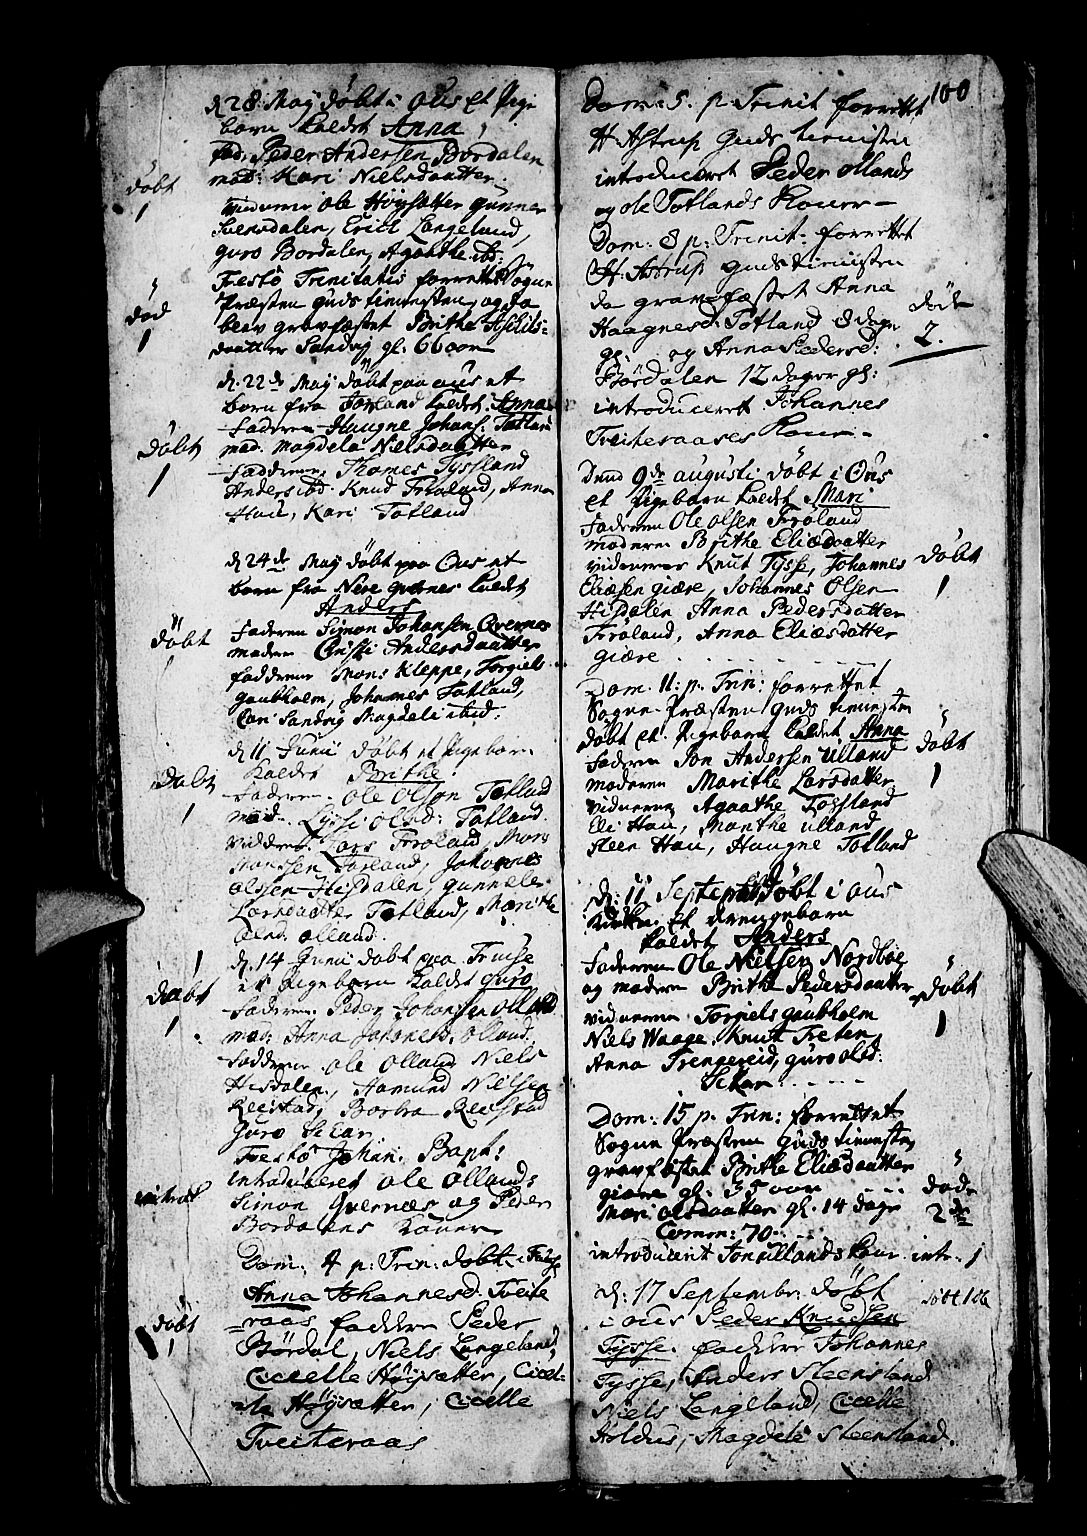 d. 28 Maÿ döbt i Ous et Pige
barn kaldet Anna,
fad: Peder Andersen Bordalen
mod: Kari Nielsdaatter
viduerne ole Höysætter gunner
Svensdalen, Erich Langeland,
guro Bordalen, Agaathe ibd:
döbt
1
Festö Trinitatis forrettet Sogne
Præsten guds tienesten, og da
blev gravfæstet Brithe
daatter Sandvig gl. 66 aar
död
1
d. 22de Maÿ döbt paa aus et
barn fra Totland kaldet Anna
Faderen Haugne Johans: Totland
mod. Magdela Nielsdaatter
Fadderne Thomes Tyssland
Anders ibd. Knud Fröland, Anna
Hau, Kari Totland
döbt
1
d. 24de Maÿ döbt paa Ous et
barn fra Nere qvernes kaldet
Anders
Faderen Simon Johansen Qvernes
moderen Christi Andersdaatter
fadderne Mons Kleppe, Torgiels
gaubholm, Johannes Totland,
Cari Sandvig Magdeli ibid:
döbt
1
d. 11 Junii döbt et Pige barn
Kaldet Brithe.
Faderen. ole Olson Totland
mod. Lyssi olsd: Totland.
vidder. Lars Fröland, Mons
Monssen Totland, Johannes
olssen Hisdalen, gunnele
Larsdaatter Totland, Marithe
olsd. olland.
döbt
1
d. 14 Junii döbt paa Fuuse
et Pigebarn kaldet guro
Faderen. Peder Johansen olland
mod: Anna Johansd. olland.
Fadderne ole olland Niels
Hisdalen, Aamund Nielsen
Reistad, Barbra Reistad
Guro Skear
döbt
1
Festö Johan: Bapt:
introduceret ole ollands
Simon Qvernæs og Peder
Bordalens Koner
introd
Dom: 4 p: Trin: döbt i Fuuse
Anna Johannesd. Tveite
raas fadder Peder
Bördal, Niels Langeland,
Cicelle Höysætter, Cicel-
le Höysætter, Cicelle
Tveiteraas
döbt
1
100
Dom: 5. p. Trinit forrettet
H. Astrup Guds tienisten
introduceret Peder ollands
og ole Totlands Koner
Dom: 8 p: Trinit: forrettet
H: Astrup guds tienisten
da gravfæstet Anna
Haagnesd: Totland 8 dage
gl. og Anna Pedersd:
Bördalen 12 dager gl:
introduceret Johannes
Tveiteraases Kone
döde
2.
Dend 9de augusti döbt i Ous
et Pigebarn kaldet Mari
Faderen Ole olsen Fröland
moderen Brithe Eliæsdaatter
vidnerne Knut Tysse, Johannes
Eliæsen giære, Johannes Olsen
Hisdalen Anna Pedersdatter
Fröland, Anna Eliæsdatter
giære
döbt
1
Dom. 11: p. Trin: forrettet
Sogne-Præsten Guds tienesten
döbt et Pigebarn kaldet Anna
Faderen Jon Andersen Ulland
moderen Marithe Larsdatter
vidnerne Agaathe
Eli Hau, Marthe ulland
steen Hau, Haugne Totland
döbt
1
d: 11 Septemb döbt i ous
et drengebarn
kaldet Anders
Faderen Ole Nielsen Nordbøe
og moderen Brithe Pedersdaatter
vidnerne Torgiels gaubholm
Niels Waage. Knut Treten,
Anna Trengereid, guro olsd:
Skear
döbt
1
Dom: 15 p. Trin: forrettet
Sogne Præsten Guds tieneste,
gravfæstet Brithe Eliæsdaatter
giære gl. 35 aar
Mari olsdaatter gl. 14 dage
Comm: 70
introducert Jon ullands Kone
döde
2de
intr. 1
d: 17 Septembr: döbt
i ous Peder Knudsen
Tysse. fadder Johannes
Tysse, Anders Steensland
Niels Langeland, Cicelle
Holdus, Magdele Steensland.
döbt 1